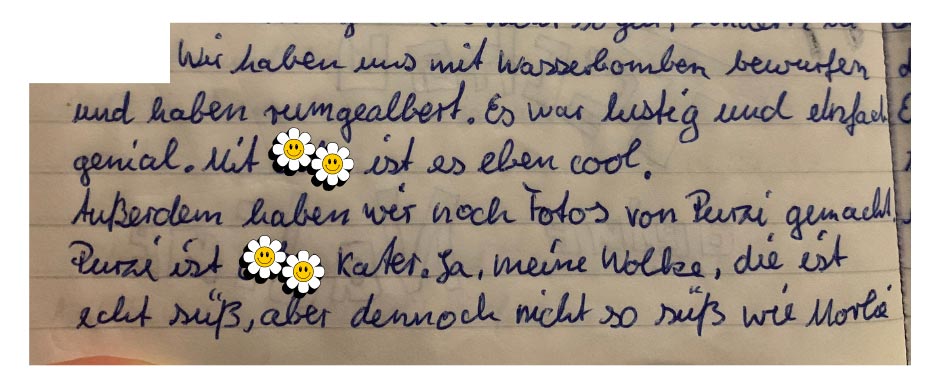 Wir haben uns mit Wasserbomben bewurfen
und haben rumgealbert. Es war lustig und einfach
genial. Mit ist es eben cool.
Außerdem haben wir noch Fotos von Purzi gemacht.
Purzi ist Kater. Ja, meine Wolke, die ist
echt süß, aber dennoch nicht so süß wie